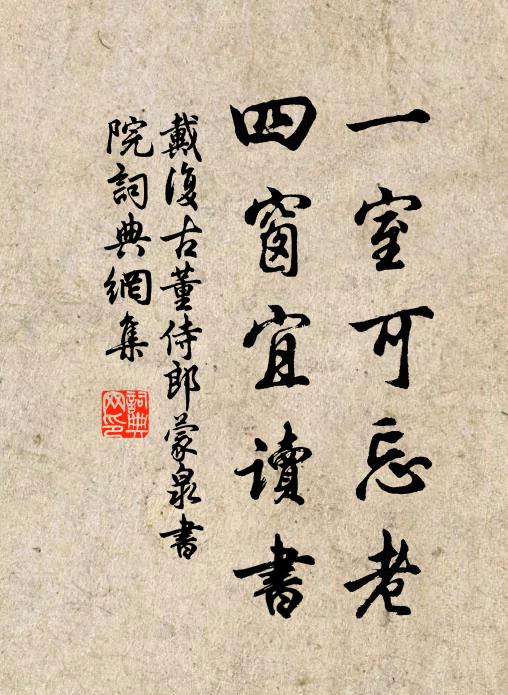 一室可忘老
四窗宜讀書
戴復古董侍郎蒙泉書
院詞典網集
詞典網印